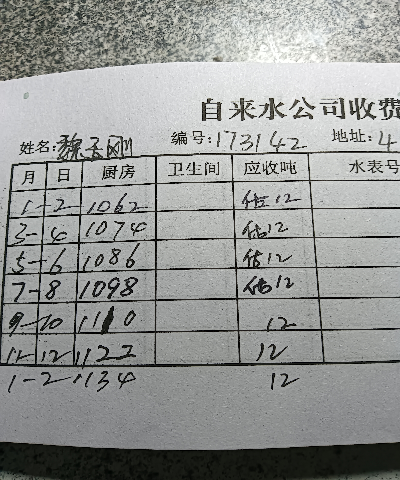 自来水公司收费
姓名: 魏 刚 编号: 173142 地址: 4
月 日 厨房 卫生间 应收吨 水表号
1-2 1062 估12
3-4 1074 估12
5-6 1086 估12
7-8 1098 估12
9-10 1110 12
11-12 1122 12
1-2 1134 12